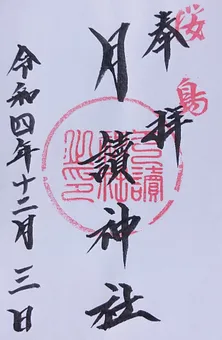 桜島
奉拝
月讀神社
令和四年十二月三日